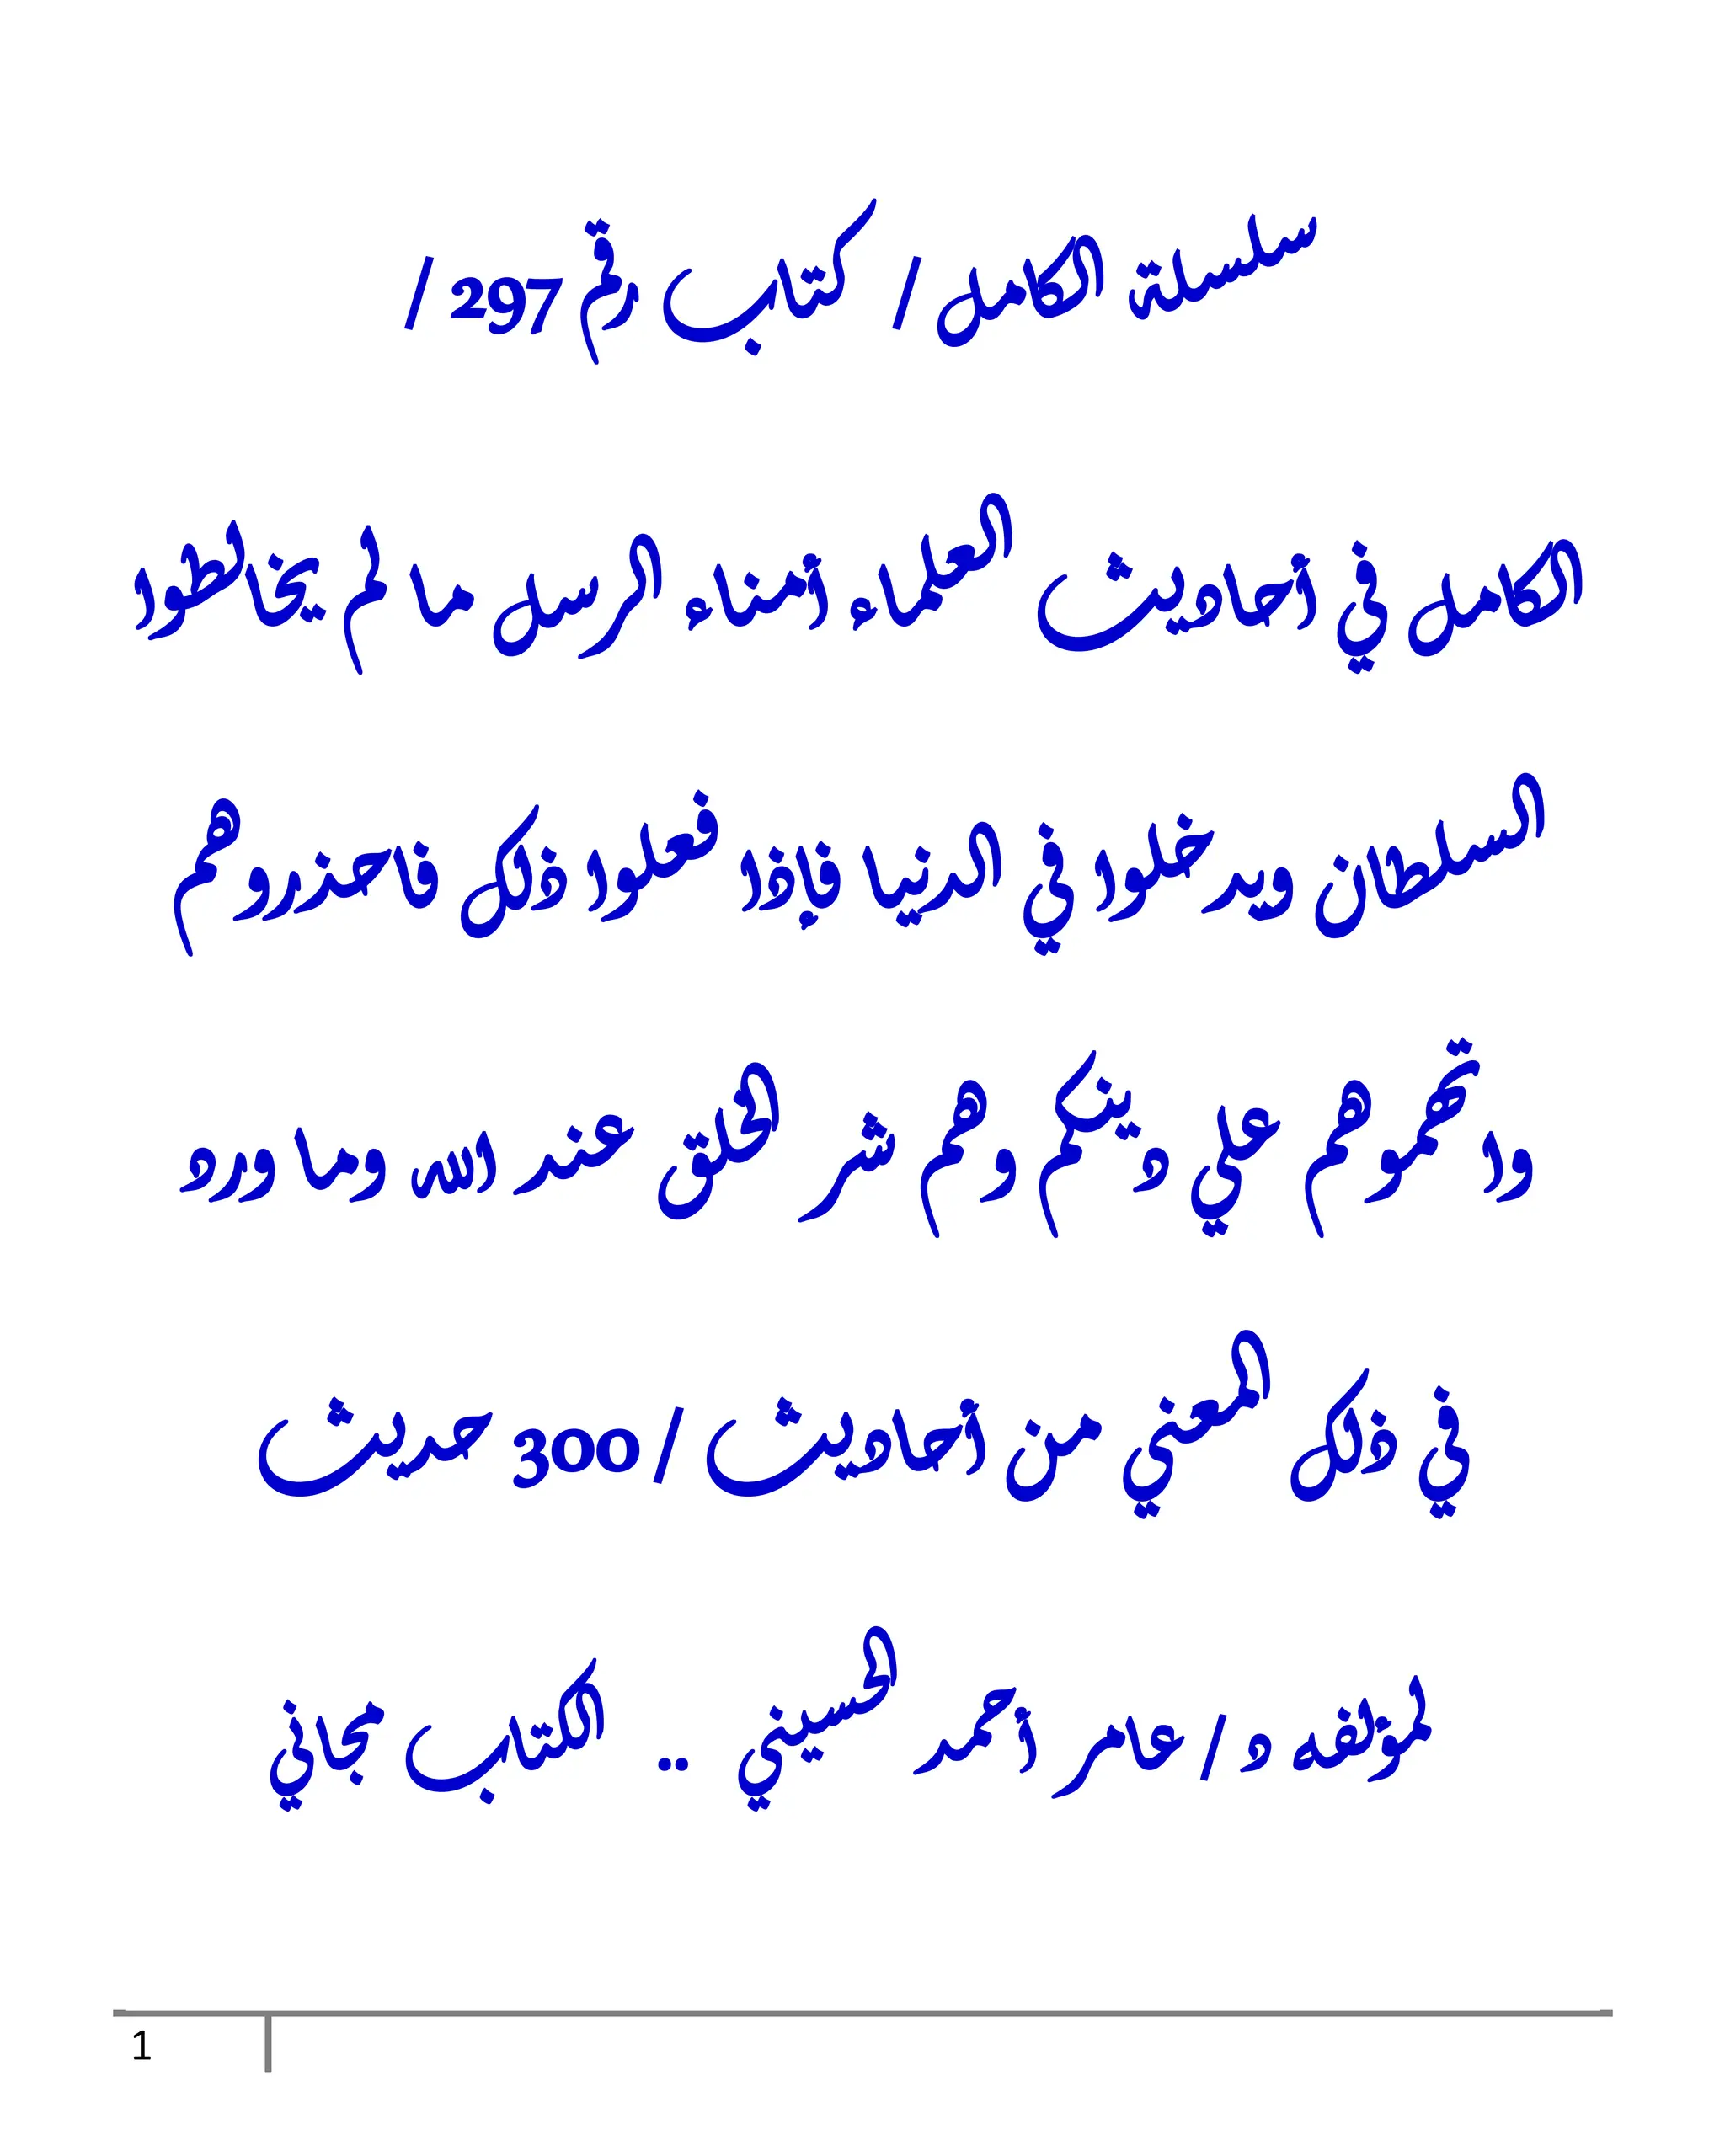 سلسلة الكامل / كتاب رقم 297 /
الكامل في أحاديث العلماء أمناء الرسل ما لم يخالطوا
السلطان ويدخلوا في الدنيا فإذا فعلوا ذلك فاعتزلوهم
واتهموهم علي دينكم وهم شر الخلق عند الله وما ورد
في ذلك المعني من أحاديث / 300 حديث
لمؤلفه و / عامر أحمد الحسيني .. الكتاب مجاني
1